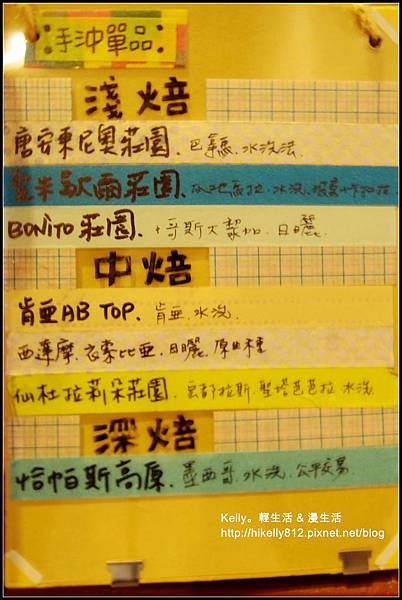 手沖單品
淺焙
唐安東尼奧莊園、巴拿馬.水洗法.
聖米歇爾莊園、瓜地馬拉.水洗.
BONITO莊園、哥斯大黎加.日曬.
中焙
肯亞AB TOP、肯亞.水洗.
西達摩.衣索比亞.日曬.原生種
仙杜拉莉朵莊園.宏都拉斯.聖塔芭芭拉 水洗
深焙
恰帕斯高原.墨西哥.水洗.公平交易
Kelly。輕生活 & 漫生活
http://hikelly812.pixnet.net/blog